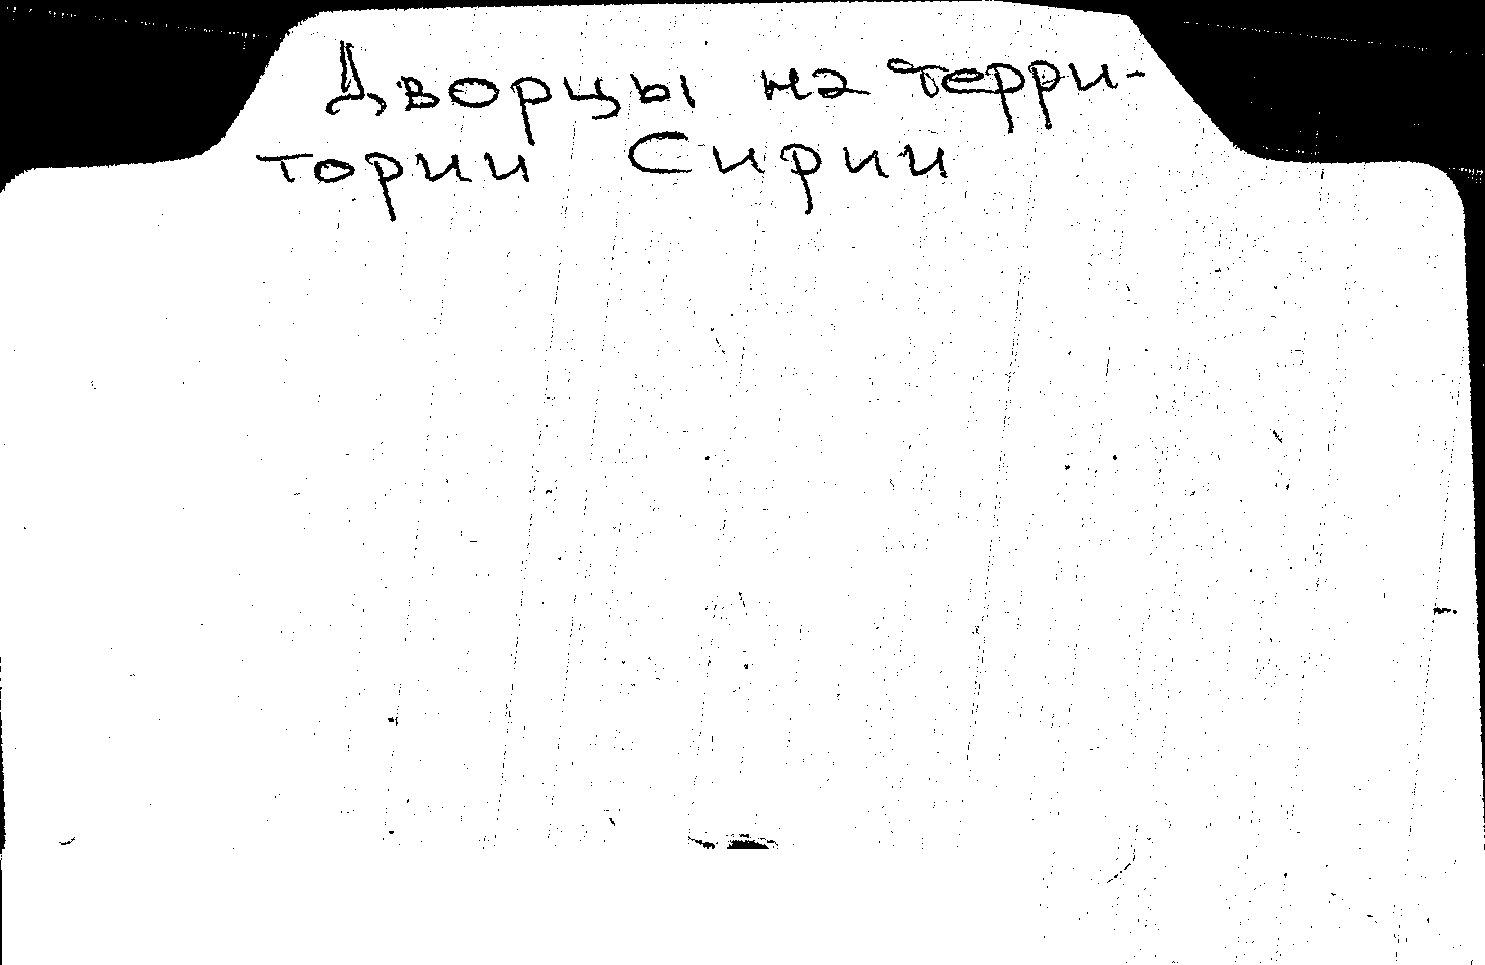 Дворцы на терри-
тории Сирии